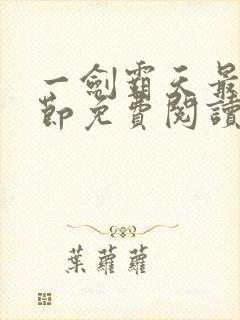 一劍霸天最
節免費閱讀
葉蘿蘿